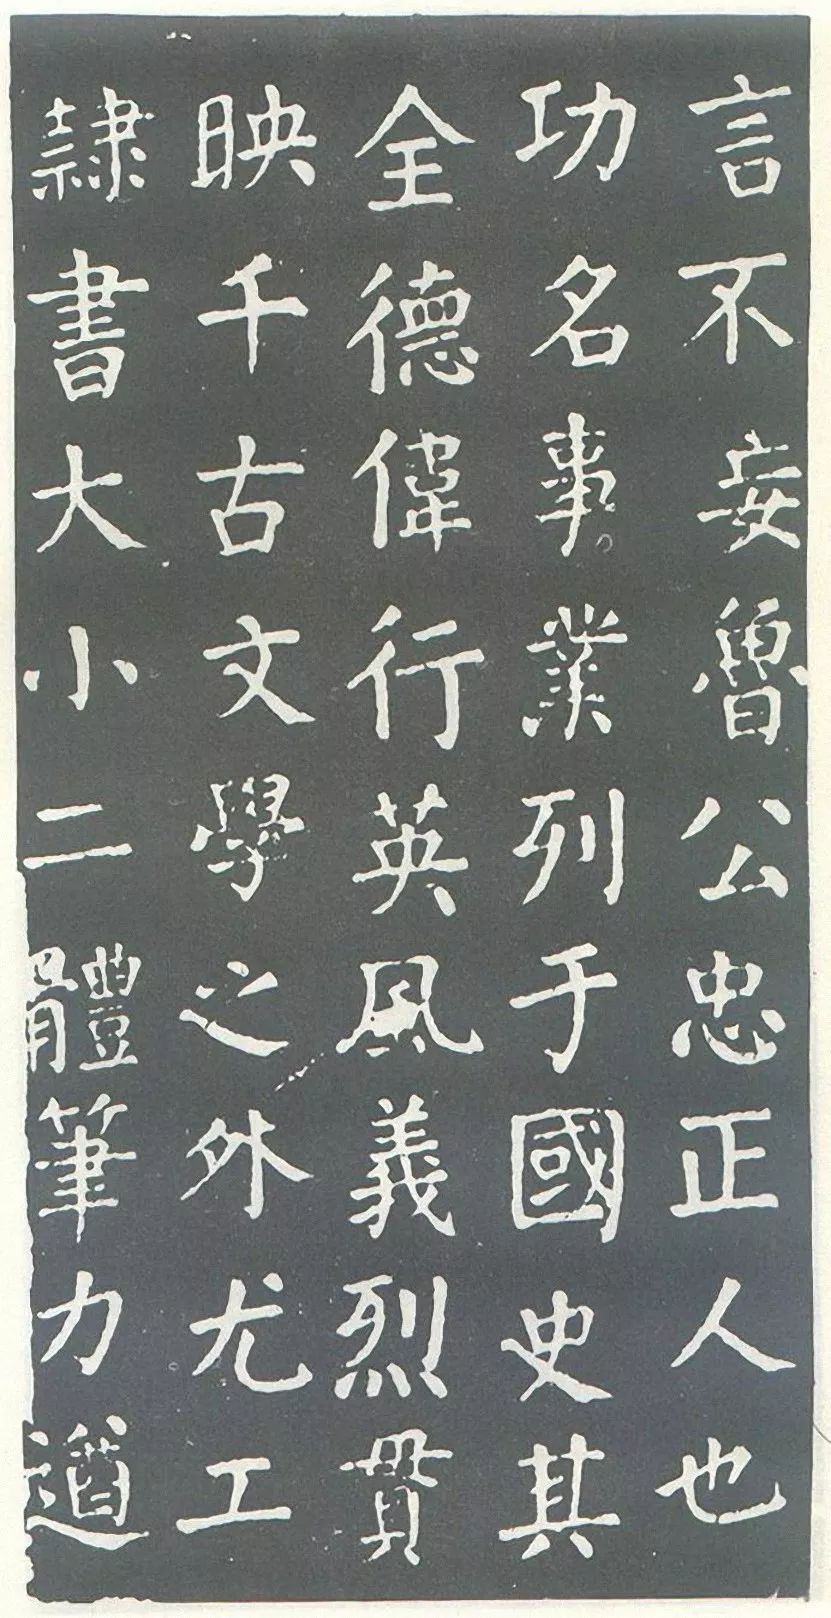 言不妄魯公忠正人也
功名事業列于國史其
全德偉行英風義烈貫
映千古文學之外尤工
隷書大小二體筆力遒